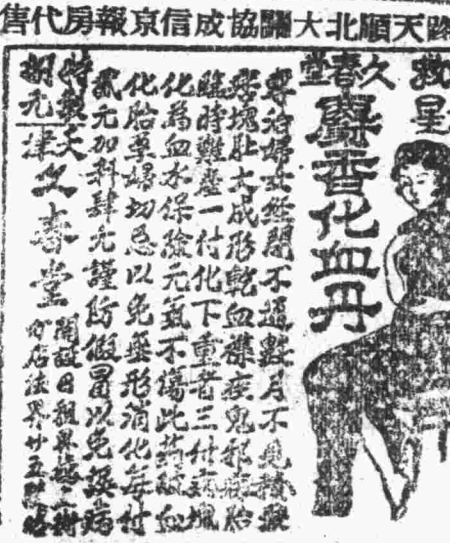 路天順北大關協成信京報房代售
救星
久春堂
麝香化血丹
專治婦女經閉不通數月不見積聚
塊肚大成形乾血癆疾鬼邪疑胎
臨時難產一付化下重者三付
化為血水保險元氣不傷此藥破血
化胎孕婦切忌以免無形消化每付
貳元加料肆元謹防假冒以免誤病
特製天津久春堂
開設日租界街
分店法界廿五號路